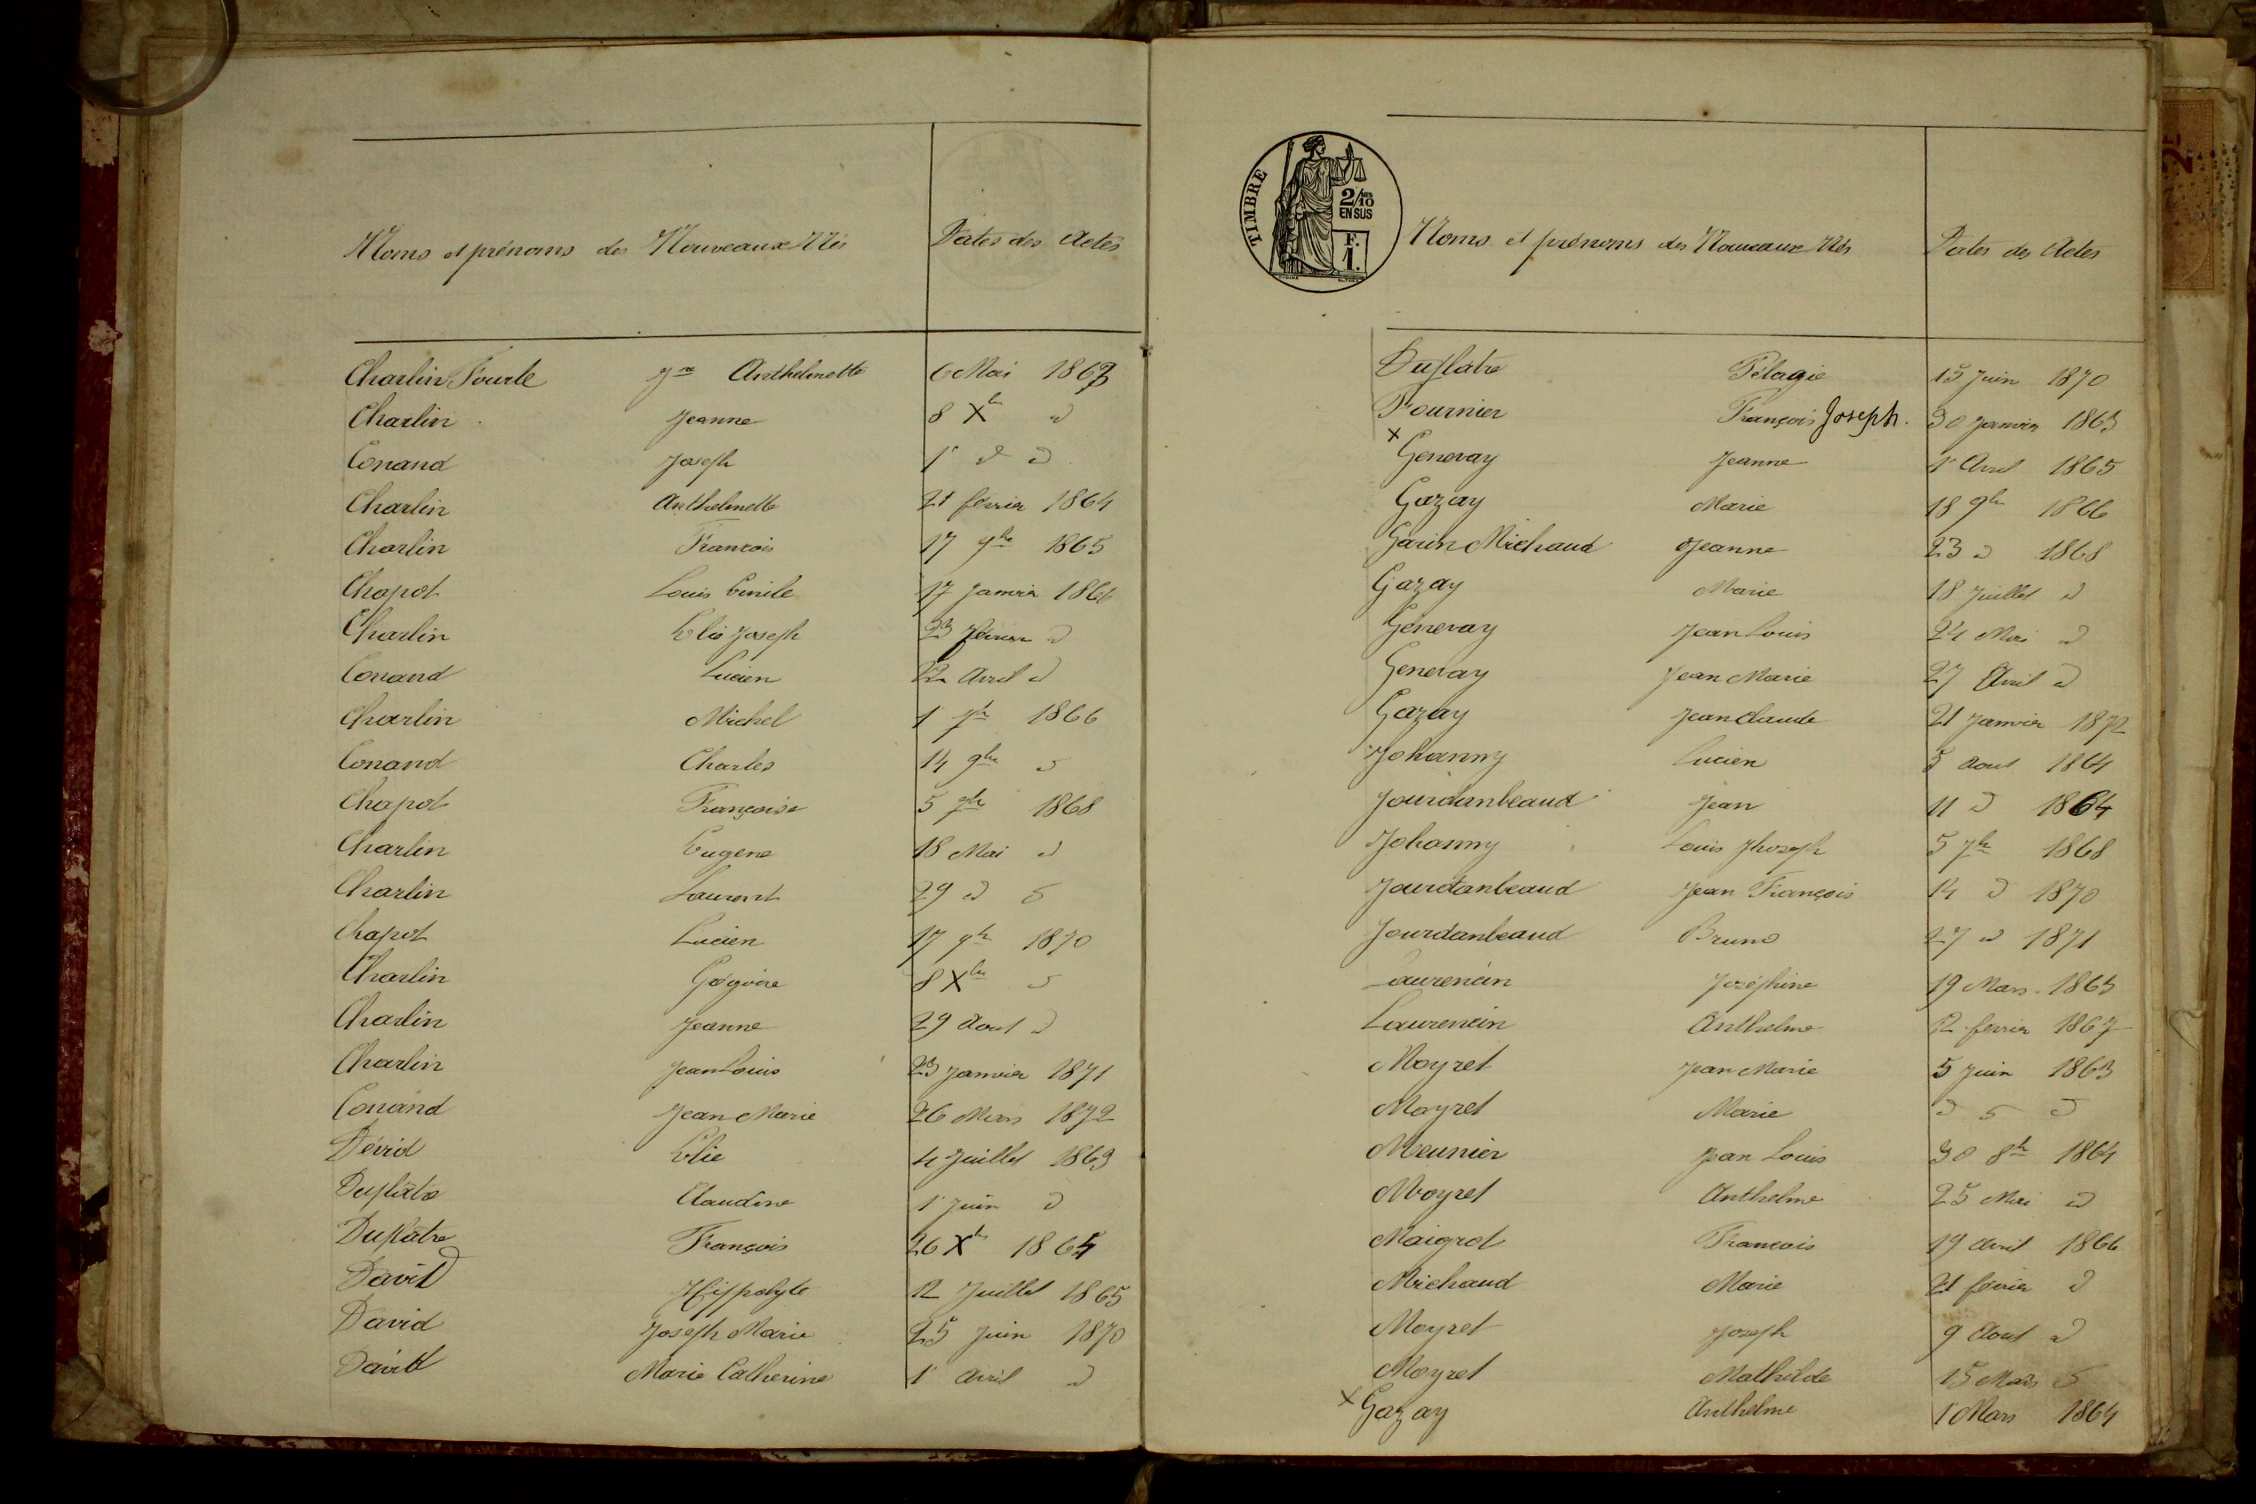 Noms et prénoms des Nouveaux Nés Dates des Actes
Charlin Fourle Anthelmette 6 Mai 1863
Charlin Jeanne 8 Xbre d
Conand Joseph 1r d d
Charlin Anthelmette 21 février 1864
Charlin Francois 17 1865
Chapot Louis Emile 17 Janvier 1866
Charlin Elie Joseph 23 février d
Conand Lucien 22 Avril d
Charlin Michel 1r 1866
Conand Charles 14 9bre d
Chapot Françoise 5 1868
Charlin Eugene 18 Mai d
Charlin Laurent 29 d d
Chapot Lucien 17 1870
Charlin Grégoire 8 Xbre d
Charlin Jeanne 29 Aout d
Charlin Jean Louis 23 Janvier 1871
Conand Jean Marie 26 Mars 1872
Dévid Elie 4 Juillet 1863
Duplâtre Claudine 1r Juin d
Duplâtre François 26 Xbre 1864
David Hippolyte 12 Juillet 1865
David Joseph Marie 25 Juin 1870
David Marie Catherine 1r Avril d
TIMBRE
2/10
EN SUS
F.
1.
Noms et prénoms des Nouveaux Nés Dates des Actes
Duplatre Pélagie 15 Juin 1870
Fournier François Joseph. 30 Janvier 1863
x Genevay Jeanne 1r Avril 1865
Gazay Marie 18 9bre 1866
Garin Michaud Jeanne 23 d 1868
Gazay Marie 18 Juillet d
Genevay Jean Louis 24 Mai d
Genevay Jean Marie 27 Avril d
Gazay Jean Claude 21 Janvier 1872
Johanny Lucien 5 Aout 1864
Jourdanbeaud Jean 11 d 1864
Johanny Louis Jhoseph 5 7bre 1868
Jourdanbeaud Jean François 14 d 1870
Jourdanbeaud Bruno 27 d 1871
Laurencin Joséphine 19 Mars 1865
Laurencin Anthelme 12 fevrier 1867
Moyret Jean Marie 5 Juin 1863
Moyret Marie d 5 d
Meunier Jean Louis 30 8bre 1864
Moyret Anthelme 25 Mai d
Maigrot Francois 19 Avril 1866
Michaud Marie 21 février d
Moyret Joseph 9 Aout d
Moyret Mathilde 15 Mars d
x Gazay Anthelme 1r Mars 1864